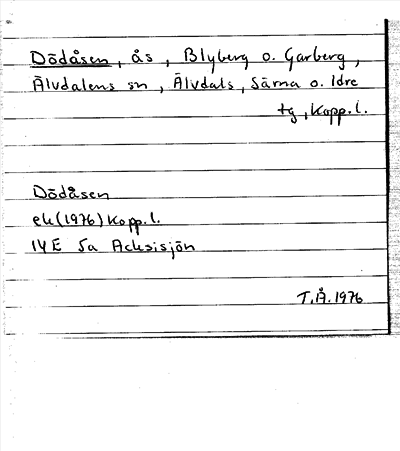 Dödåsen, ås, Blyberg o. Garberg,
Älvdalens sn, Älvdals, Särna o. Idre
tg, Kopp.l.
Dödåsen
ek(1976) Kopp.l.
14E 5a Acksisjön
T.Å.1976